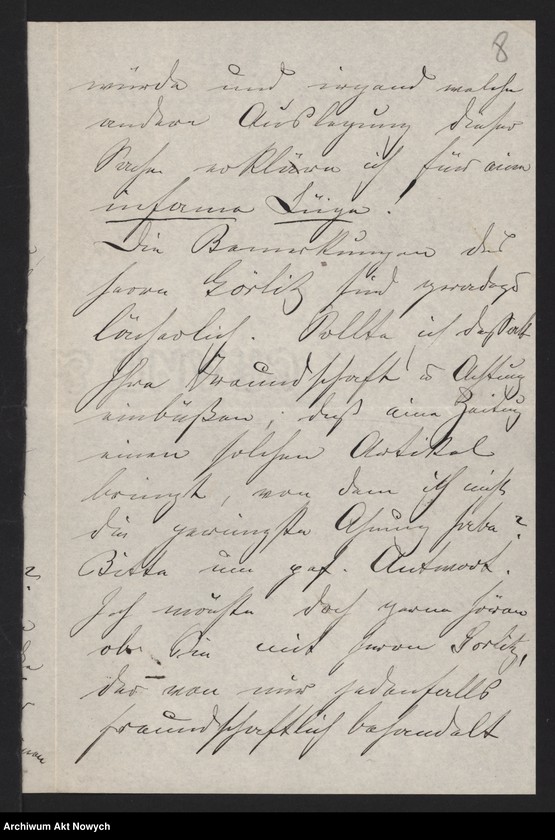 8
würde und irgend welche
andere Auslegung dieser
Sache erkläre ich für eine
infame Lüge!
Die Bemerkungen des
Herrn Görlitz sind geradezu
lächerlich. Sollte ich deshalb
Ihre Freundschaft u Achtung
einbüßen, daß eine Zeitung
einen solchen Artikel
bringt, von dem ich nicht
die geringste Ahnung habe?
Bitte um gef. Antwort.
Ich möchte doch gerne hören
ob Sie mit Herrn Görlitz,
der von mir jedenfalls
freundschaftlich behandelt
Archiwum Akt Nowych